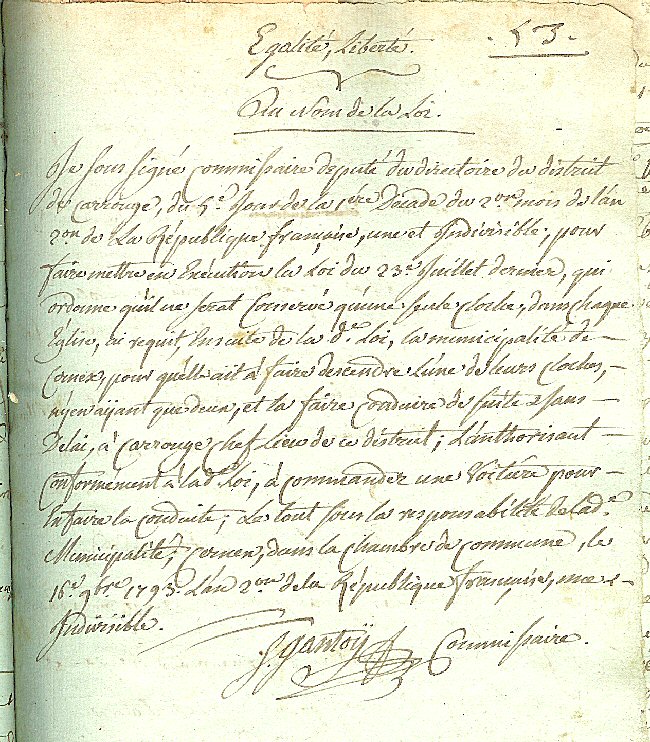 Egalité, Liberté.
. 53 .
Au Nom de la Loi.
Je sous signé Commissaire deputé du directoire du district
de Carrouge, du 5.e Jour de la 1ère Décade du 2.me mois de l'an
2.me de La République francaise, une et Indivisible, pour
faire mettre en Exécution la Loi du 23.e Juillet dernier, qui
ordonne qu'il ne serat Conservé qu'une seule Cloche, dans chaque
Eglise, ai requit, Ensuite de la d.te Loi, la municipalité de
Cornex, pour qu'elle ait à faire descendre L'une de leurs Cloches,
n'yen aÿant que deux, et la faire Conduire de suite & Sans
Delai, à Carrouge Chef Lieu de ce district; L'authorisant
Conformement à la d.e Loi, à commander une Voitûre pour
En faire la Conduite; Le tout sous la responsabilité de Lad.e
Municipalité; Cornex, dans la Chambre de Commune, le
16.e 9bre 1793. L'an 2.me de la République francaise, une &
Indivisible.
J. Gantoÿ Commissaire.